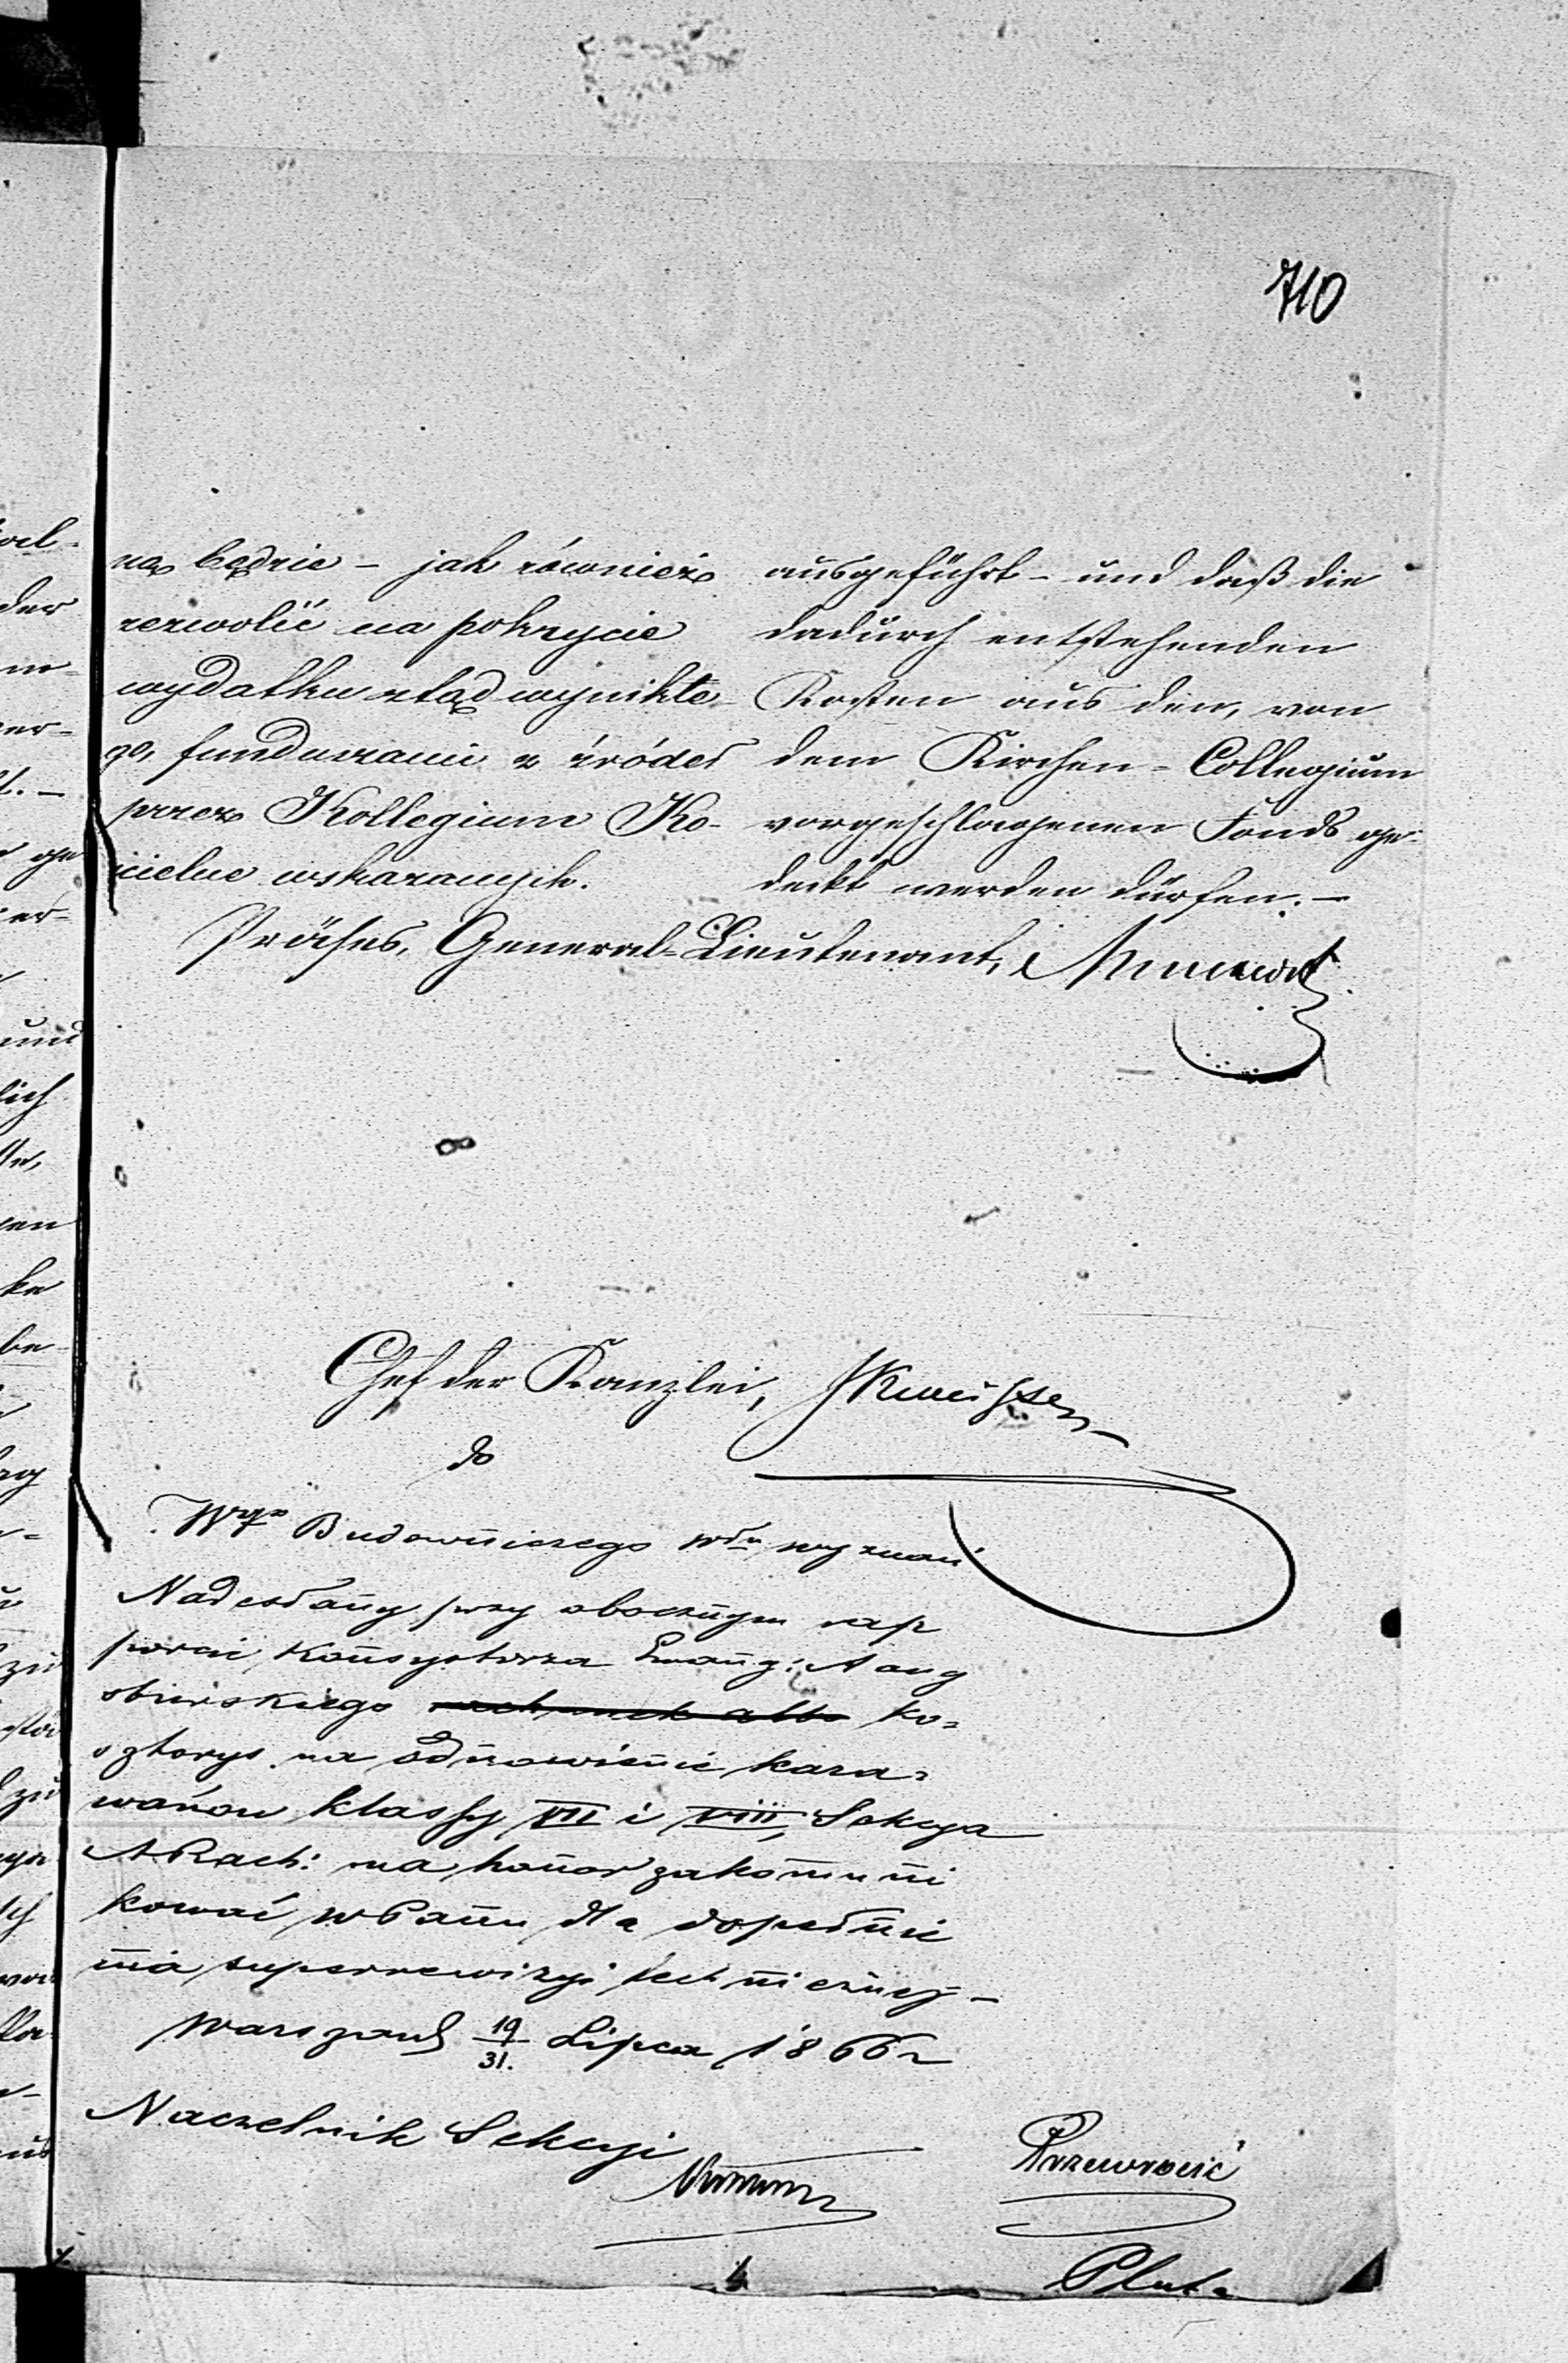 710
ną będzie – jak również
zezwolić na pokrycie
wydatku ztąd wynikłe-
go, funduszami z źródeł
przez Kollegium Ko-
ścielne wskazanych.
ausgeführt – und daß die
dadurch entstehenden
Kosten aus den, von
dem Kirchen-Collegium
vorgeschlagenen Fonds ge-
deckt werden dürfen. –
Präses, General-Lieutenant,
Chef der Kanzlei,
do
Wgo Budowniczego wdu wyznań
Nadesłany przy obocznym rap
porcie Konsystorza Ewang: Aug
sburskiego ko-
sztorys na odnowienie kara-
wanów klassy VII i VIII, Sekcya
A Rach: ma honor zakomuni
kować WPanu dla dopełnie
nia superrewizyi technicznej –
Warszawa 19/31. Lipca 1866 r
Naczelnik Sekcyi